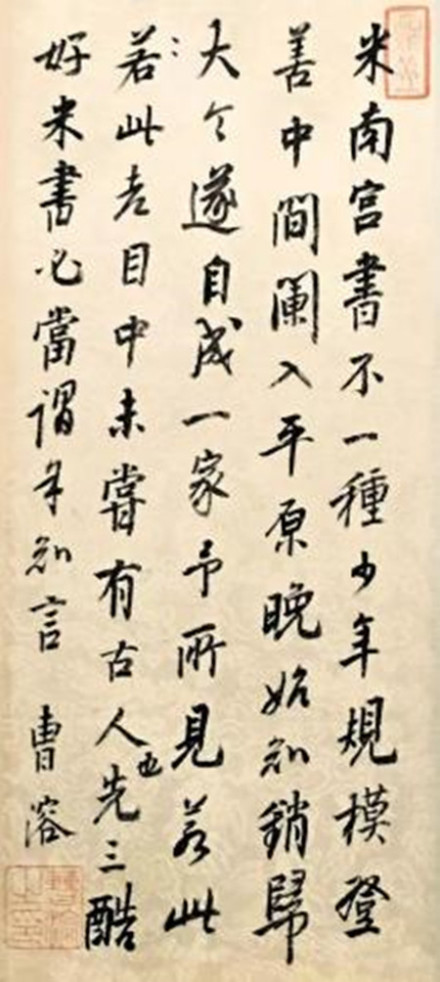 米南宮書不一種少年規模登
善中間闌入平原晚始知銷歸
大令遂自成一家予所見若此
若此老目中未嘗有古人也先三酷
好米書必當謂予知言 曹溶